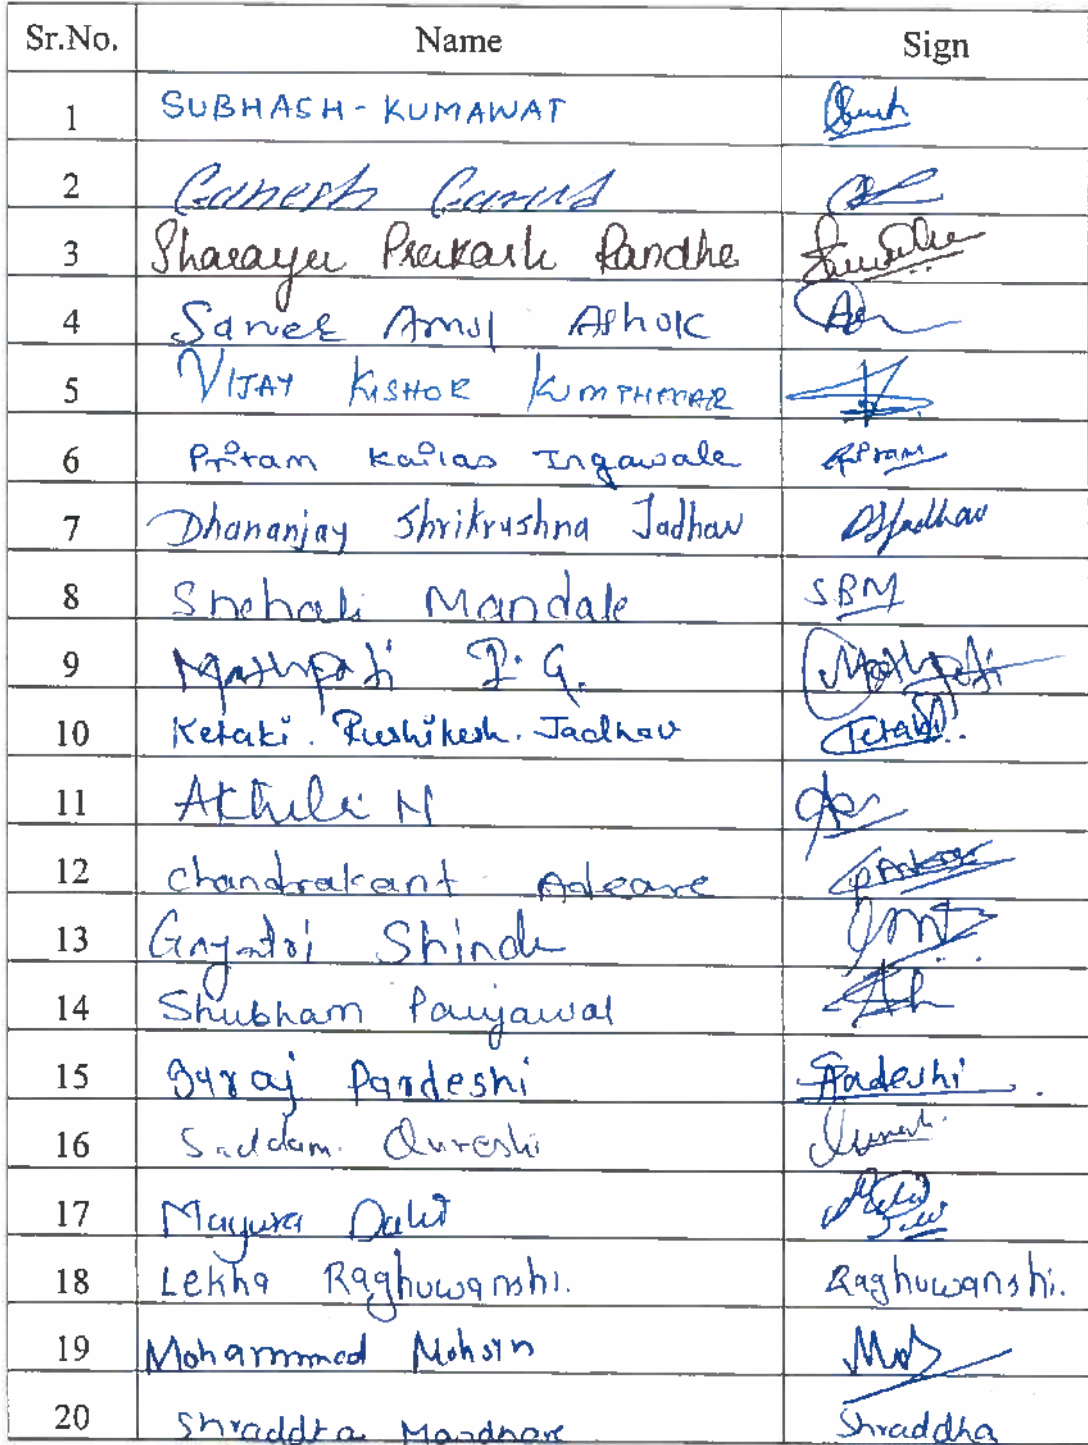 Sr.No. Name Sign
1 SUBHASH-KUMAWAT
2 Ganesh Gurud
3 Sharayu Prakash Randhe
4 Sanek Amol Ashok
5 VIJAY KISHOR
6 Pritam Kailas Ingawale Pritam
7 Dhananjay Shrikrushna Jadhav DSJadhav
8 Snehali Mandale SBM
9 Mathpati G. Mathpati
10 Ketaki. Rushikesh. Jadhav Ketaki
11 N
12 Chandrakant
13 Gayatri Shinde
14 Shubham Panjawal
15 Suraj Pardeshi Pardeshi
16 Saddam. Qureshi
17 Mayura
18 Lekha Raghuwanshi. Raghuwanshi.
19 Mohammad Mohsin
20 Shraddha Shraddha